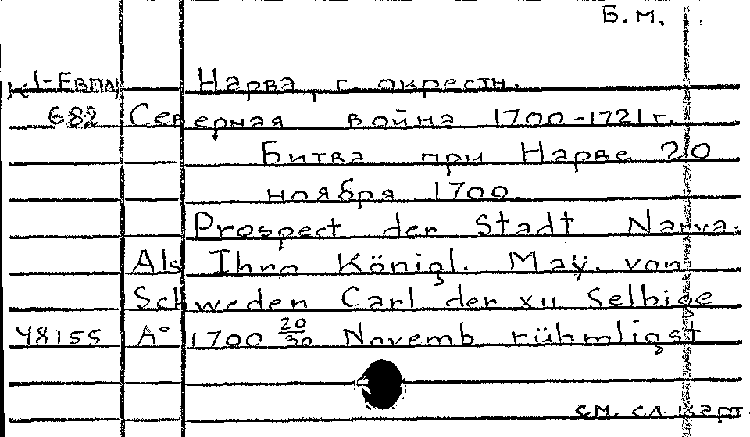 Б.М.
К1-Евпл Нарва, г. окрестн.
682 Северная война 1700-1721 г.
Битва при Нарве 20
ноября 1700
Prospect der Stadt Narva.
Als Ihro Königl. Maÿ. von
Schweden Carl der XII Selbige
48155 A° 1700 20/30 Novemb rühmligst
см. сл. карт.